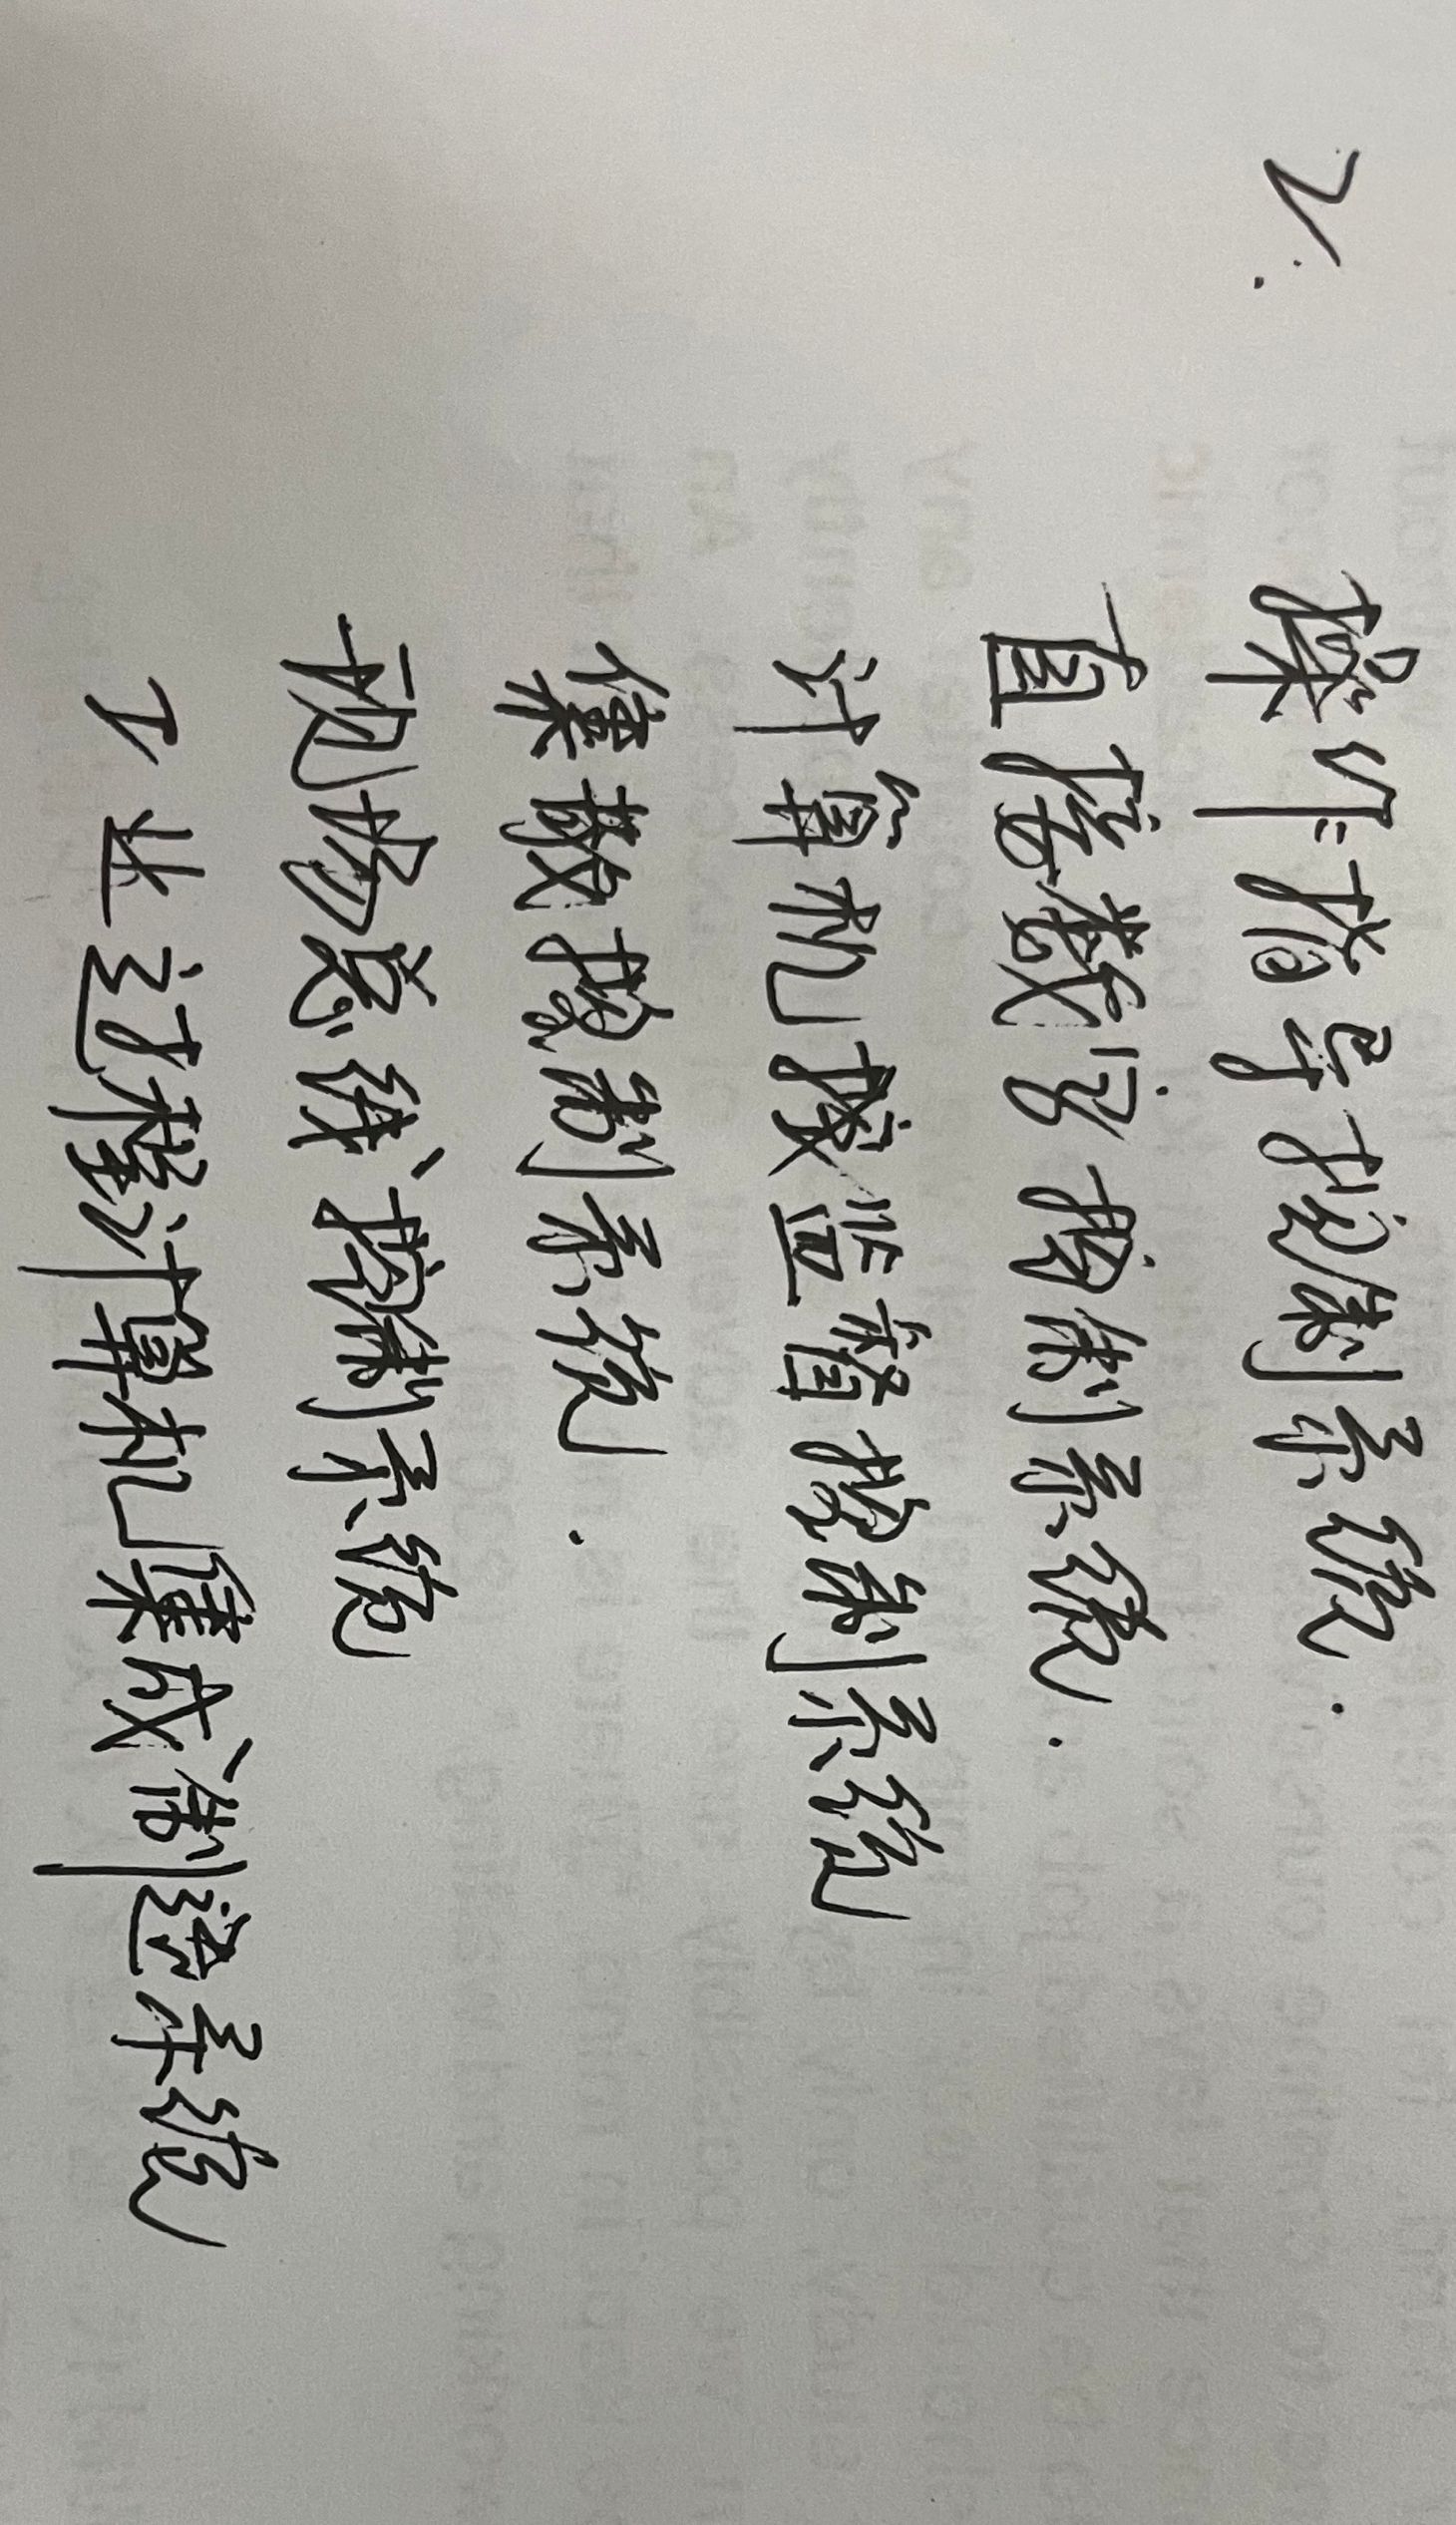 2. 操作指导控制系统.
直接数字控制系统.
计算机控监督控制系统
集散控制系统.
现场总线控制系统
工业过程计算机集成制造系统